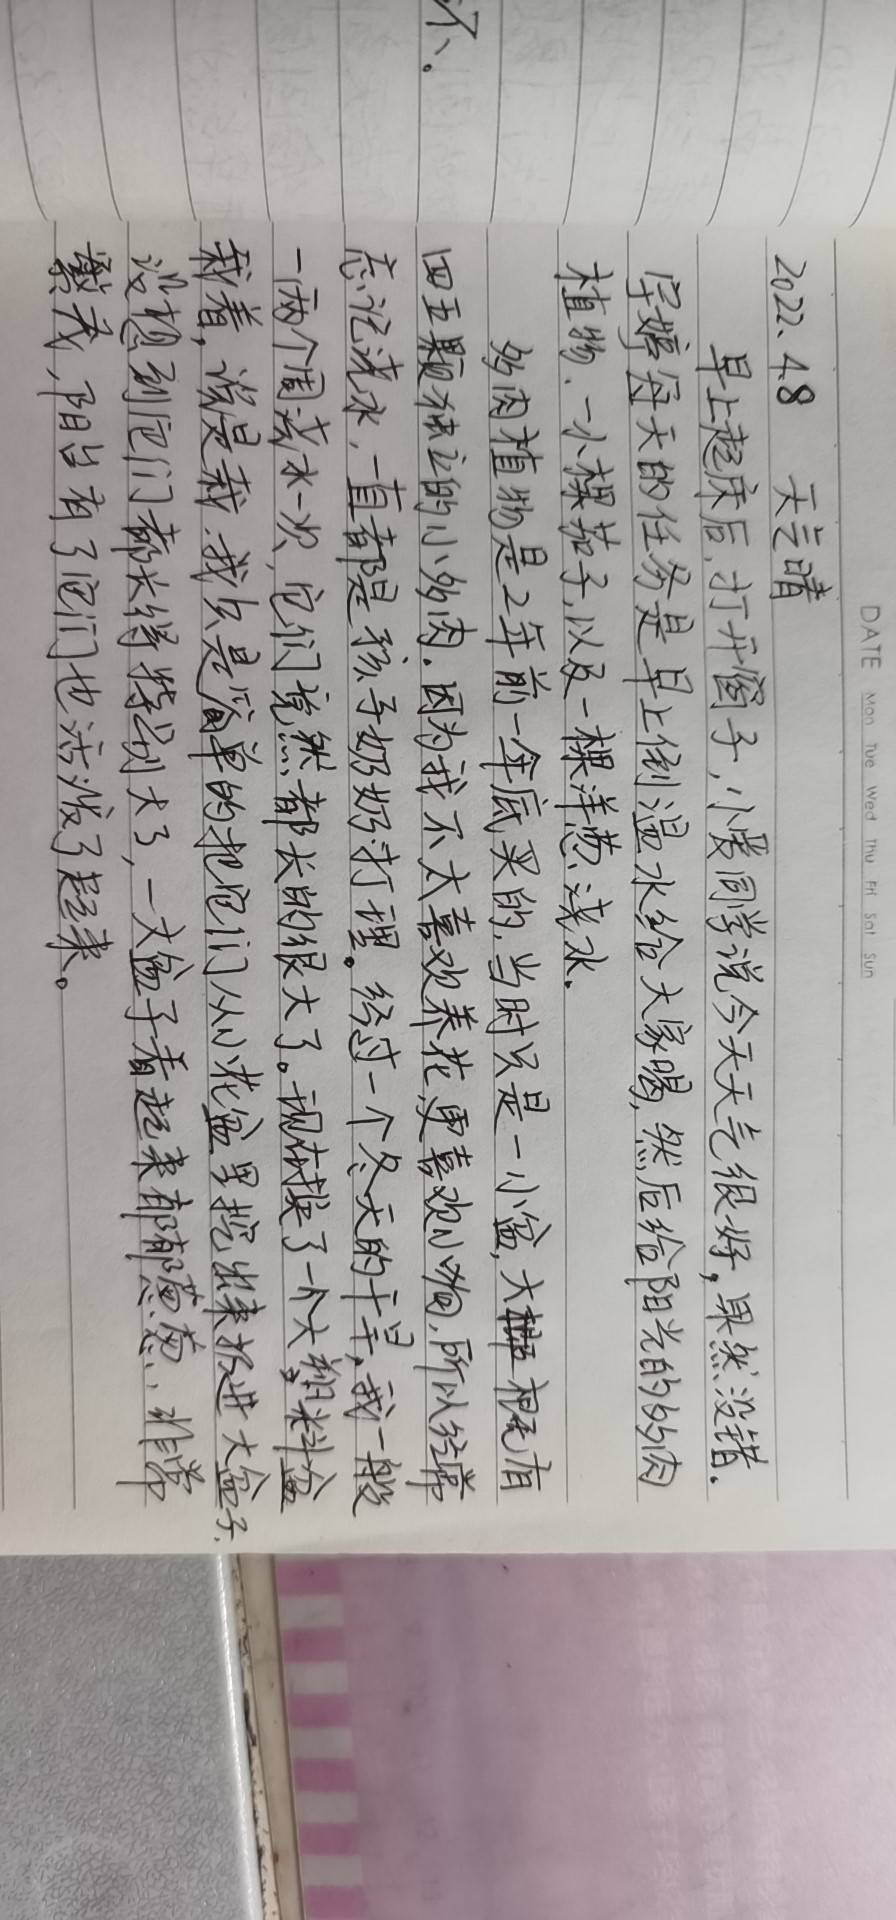 不、。
DATE Mon Tue Wed Thu Fri Sat Sun
2022.4.8 天气晴
早上起床后,打开窗子,小爱同学说今天天气很好,果然没错.
宇婷每天的任务是早上倒温水给大家喝,然后给阳光的多肉
植物、一小棵茄子,以及一棵洋葱浇水.
多肉植物是2年前一年底买的,当时只是一小盆,大概有
四五颗独立的小多肉.因为我不太喜欢养花,更喜欢小狗,所以经常
忘记浇水,一直都是孩子奶奶打理。经过一个冬天的干旱,我一般
一两个周浇水一次,它们竟然都长的很大了。现在换了一个大塑料盆
栽着,说是栽.我只是简单的把它们从小花盆里挖出来扔进大盆子,
没想到它们都长得特别大了,一大盆子看起来郁郁葱葱,非常
繁茂,阳台有了它们也活泼了起来。